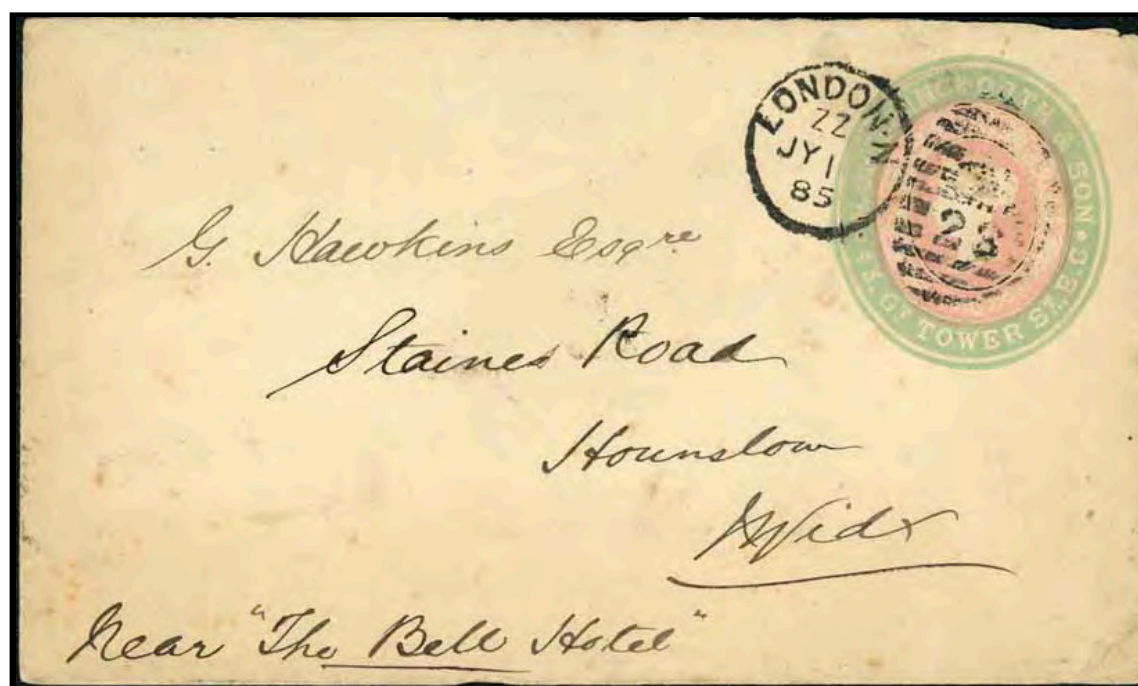 LONDON·N
ZZ
JY 1
85
& SON · 
GT TOWER ST. E.C.
28
G. Hawkins Esqre
Staines Road
Hounslow
Midx
Near "The Bell Hotel"